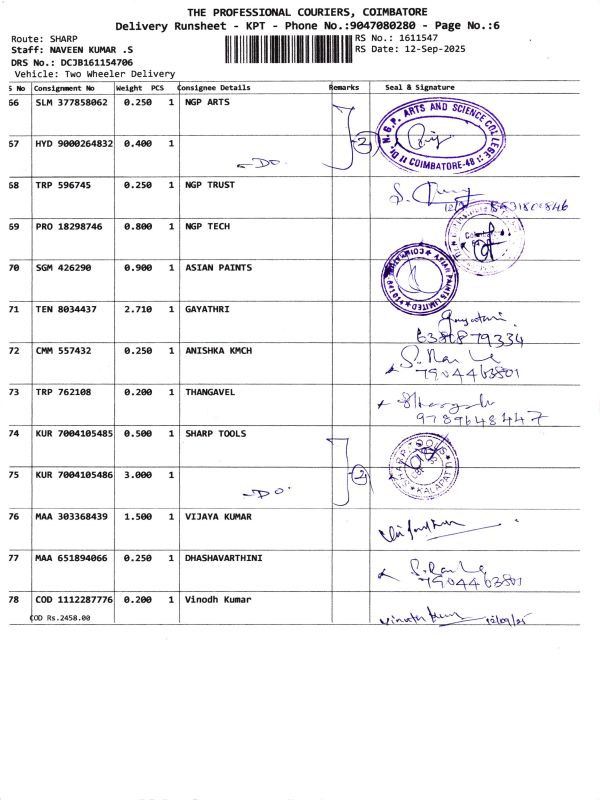 THE PROFESSIONAL COURIERS, COIMBATORE
Delivery Runsheet - KPT - Phone No.:9047080280 - Page No.:6
Route: SHARP
RS No.: 1611547
Staff: NAVEEN KUMAR .S
RS Date: 12-Sep-2025
DRS No.: DCJB161154706
Vehicle: Two Wheeler Delivery
S No Consignment No Weight PCS Consignee Details Remarks Seal & Signature
66 SLM 377858062 0.250 1 NGP ARTS
2
Dr. N.G.P. ARTS AND SCIENCE COLLEGE
COIMBATORE-48
67 HYD 9000264832 0.400 1
-DO-
68 TRP 596745 0.250 1 NGP TRUST
69 PRO 18298746 0.800 1 NGP TECH
70 SGM 426290 0.900 1 ASIAN PAINTS
ASIAN PAINTS LIMITED
COIMBATORE
71 TEN 8034437 2.710 1 GAYATHRI
Gayatri
6380879334
72 CMM 557432 0.250 1 ANISHKA KMCH
7904463801
73 TRP 762108 0.200 1 THANGAVEL
9789648447
74 KUR 7004105485 0.500 1 SHARP TOOLS
2
SHARP TOOLS
KALAPATTI
75 KUR 7004105486 3.000 1
-DO-
76 MAA 303368439 1.500 1 VIJAYA KUMAR
77 MAA 651894066 0.250 1 DHASHAVARTHINI
7904463801
78 COD 1112287776 0.200 1 Vinodh Kumar
COD Rs.2458.00
12/09/25